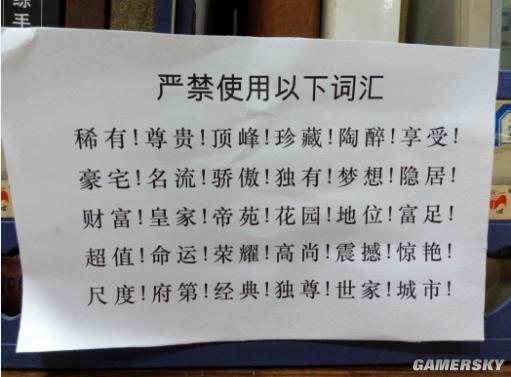 练手
严禁使用以下词汇
稀有!尊贵!顶峰!珍藏!陶醉!享受!
豪宅!名流!骄傲!独有!梦想!隐居!
财富!皇家!帝苑!花园!地位!富足!
超值!命运!荣耀!高尚!震撼!惊艳!
尺度!府第!经典!独尊!世家!城市!
GAMERSKY